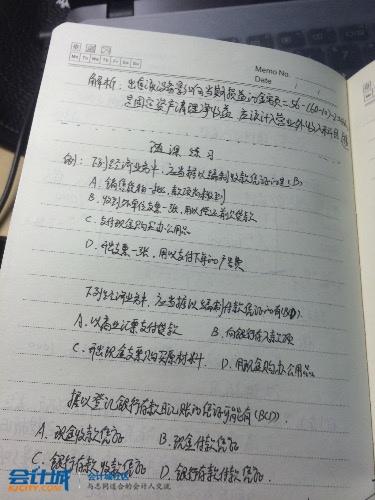 Memo No.
Mo Tu We Th Fr Sa Su
Date
解析：出售该设备影响当期损益的金额=56-(60-10)-2
是固定资产清理净收益 应该计入营业外收入科目
随课练习
例：下列经济业务中，应当据以编制收款凭证的是（B
A．销售货物一批，款项尚未收到
B．收到外单位支票一张，用以偿还前欠货款
C．支付现金购买办公用品
D．开出支票一张，用以支付下年的广告费
下列经济业务中，应当据以编制付款凭证的有(BD).
A．以商业汇票支付货款 B．向银行存入款项
C．开出现金支票购买原材料． D．用现金购办公用品
据以登记银行存款日记账的凭证可能有(BCD).
A．现金收款凭证 B．现金付款凭证
C．银行存款收款凭证 D．银行存款付款凭证．
会计城
KJCITY.COM
会计城社区
与志同道合的会计人交流